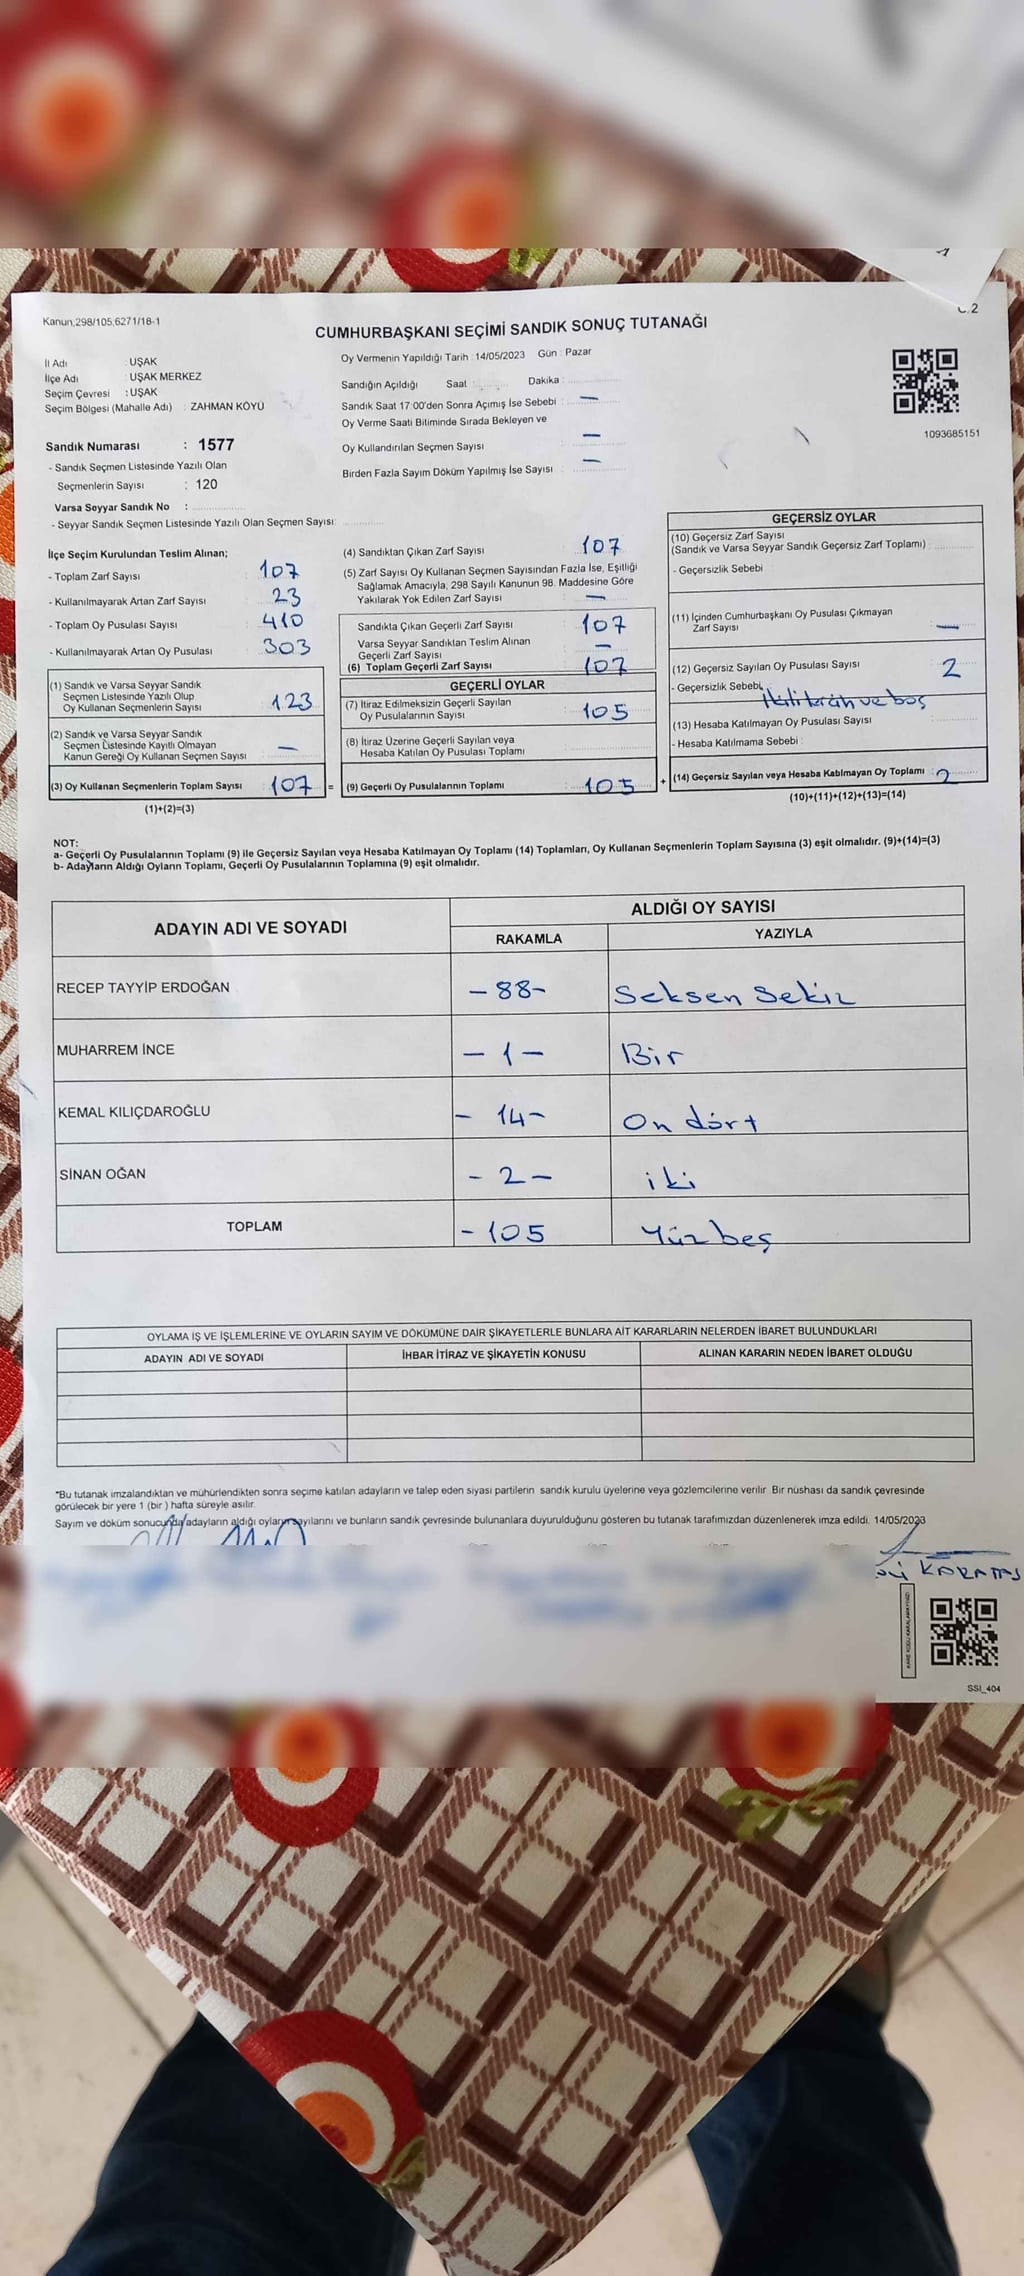 Kanun,298/105,6271/18-1
C. 2
CUMHURBAŞKANI SEÇİMİ SANDIK SONUÇ TUTANAĞI
İl Adı : UŞAK
İlçe Adı : UŞAK MERKEZ
Seçim Çevresi : UŞAK
Seçim Bölgesi (Mahalle Adı) : ZAHMAN KÖYÜ
Sandık Numarası : 1577
- Sandık Seçmen Listesinde Yazılı Olan
Seçmenlerin Sayısı : 120
Varsa Seyyar Sandık No :
- Seyyar Sandık Seçmen Listesinde Yazılı Olan Seçmen Sayısı:
Oy Vermenin Yapıldığı Tarih : 14/05/2023 Gün : Pazar
Sandığın Açıldığı Saat : Dakika :
Sandık Saat 17:00'den Sonra Açımış İse Sebebi : —
Oy Verme Saati Bitiminde Sırada Bekleyen ve
Oy Kullandırılan Seçmen Sayısı —
Birden Fazla Sayım Döküm Yapılmış İse Sayısı : —
1093685151
İlçe Seçim Kurulundan Teslim Alınan;
- Toplam Zarf Sayısı : 107
- Kullanılmayarak Artan Zarf Sayısı : 23
- Toplam Oy Pusulası Sayısı : 410
- Kullanılmayarak Artan Oy Pusulası : 303
(1) Sandık ve Varsa Seyyar Sandık
Seçmen Listesinde Yazılı Olup
Oy Kullanan Seçmenlerin Sayısı : 123
(2) Sandık ve Varsa Seyyar Sandık
Seçmen Listesinde Kayıtlı Olmayan
Kanun Gereği Oy Kullanan Seçmen Sayısı : —
(3) Oy Kullanan Seçmenlerin Toplam Sayısı : 107 =
(1)+(2)=(3)
(4) Sandıktan Çıkan Zarf Sayısı : 107
(5) Zarf Sayısı Oy Kullanan Seçmen Sayısından Fazla İse, Eşitliği
Sağlamak Amacıyla, 298 Sayılı Kanunun 98. Maddesine Göre
Yakılarak Yok Edilen Zarf Sayısı : —
Sandıkta Çıkan Geçerli Zarf Sayısı : 107
Varsa Seyyar Sandıktan Teslim Alınan
Geçerli Zarf Sayısı : —
(6) Toplam Geçerli Zarf Sayısı : 107
GEÇERLİ OYLAR
(7) İtiraz Edilmeksizin Geçerli Sayılan
Oy Pusulalarının Sayısı : 105
(8) İtiraz Üzerine Geçerli Sayılan veya
Hesaba Katılan Oy Pusulası Toplamı :
(9) Geçerli Oy Pusulalarının Toplamı : 105 +
GEÇERSİZ OYLAR
(10) Geçersiz Zarf Sayısı
(Sandık ve Varsa Seyyar Sandık Geçersiz Zarf Toplamı) :
- Geçersizlik Sebebi :
(11) İçinden Cumhurbaşkanı Oy Pusulası Çıkmayan
Zarf Sayısı : —
(12) Geçersiz Sayılan Oy Pusulası Sayısı : 2
- Geçersizlik Sebebi : ve boş
(13) Hesaba Katılmayan Oy Pusulası Sayısı :
- Hesaba Katılmama Sebebi :
(14) Geçersiz Sayılan veya Hesaba Katılmayan Oy Toplamı : 2
(10)+(11)+(12)+(13)=(14)
NOT:
a- Geçerli Oy Pusulalarının Toplamı (9) ile Geçersiz Sayılan veya Hesaba Katılmayan Oy Toplamı (14) Toplamları, Oy Kullanan Seçmenlerin Toplam Sayısına (3) eşit olmalıdır. (9)+(14)=(3)
b- Adayların Aldığı Oyların Toplamı, Geçerli Oy Pusulalarının Toplamına (9) eşit olmalıdır.
ADAYIN ADI VE SOYADI ALDIĞI OY SAYISI
RAKAMLA YAZIYLA
RECEP TAYYİP ERDOĞAN - 88 - Seksen Sekiz
MUHARREM İNCE - 1 - Bir
KEMAL KILIÇDAROĞLU - 14 - On dört
SİNAN OĞAN - 2 - iki
TOPLAM - 105 Yüz beş
OYLAMA İŞ VE İŞLEMLERİNE VE OYLARIN SAYIM VE DÖKÜMÜNE DAİR ŞİKAYETLERLE BUNLARA AİT KARARLARIN NELERDEN İBARET BULUNDUKLARI
ADAYIN ADI VE SOYADI İHBAR İTİRAZ VE ŞİKAYETİN KONUSU ALINAN KARARIN NEDEN İBARET OLDUĞU
*Bu tutanak imzalandıktan ve mühürlendikten sonra seçime katılan adayların ve talep eden siyasi partilerin sandık kurulu üyelerine veya gözlemcilerine verilir. Bir nüshası da sandık çevresinde
görülecek bir yere 1 (bir ) hafta süreyle asılır.
Sayım ve döküm sonucunda adayların aldığı oyların sayılarını ve bunların sandık çevresinde bulunanlara duyurulduğunu gösteren bu tutanak tarafımızdan düzenlenerek imza edildi. 14/05/2023
KARATAŞ
SSI_404